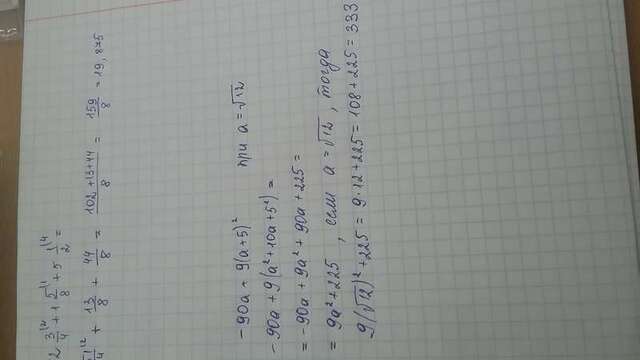 2 3/4 + 1 5/8 + 5 1/2 =
+ 13/8 + 44/8 = 102+13+44/8 = 159/8 = 19,875
-90a + 9(a+5)² при a=√12
-90a + 9(a²+10a+5²) =
= -90a + 9a² + 90a + 225 =
= 9a²+225 , если a=√12 , тогда
9(√12)²+225 = 9·12+225 = 108+225 = 333